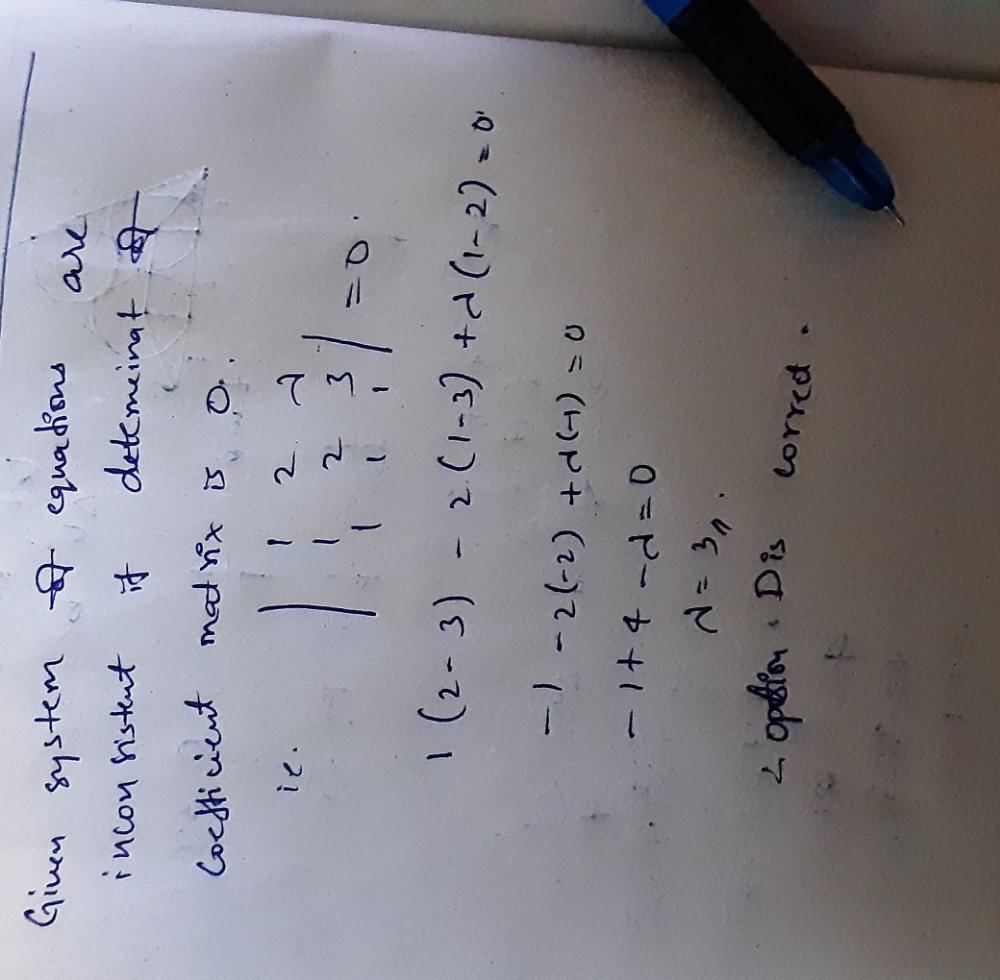 Given system of equations are
inconsistent if determinat of
coefficient matrix is 0.
ie. | 1 2 λ
1 2 3
1 1 1 | = 0.
1 (2-3) - 2 (1-3) + λ (1-2) = 0
-1 -2(-2) + λ(-1) = 0
-1 + 4 - λ = 0
λ = 3,,.
∠ option. D is correct.